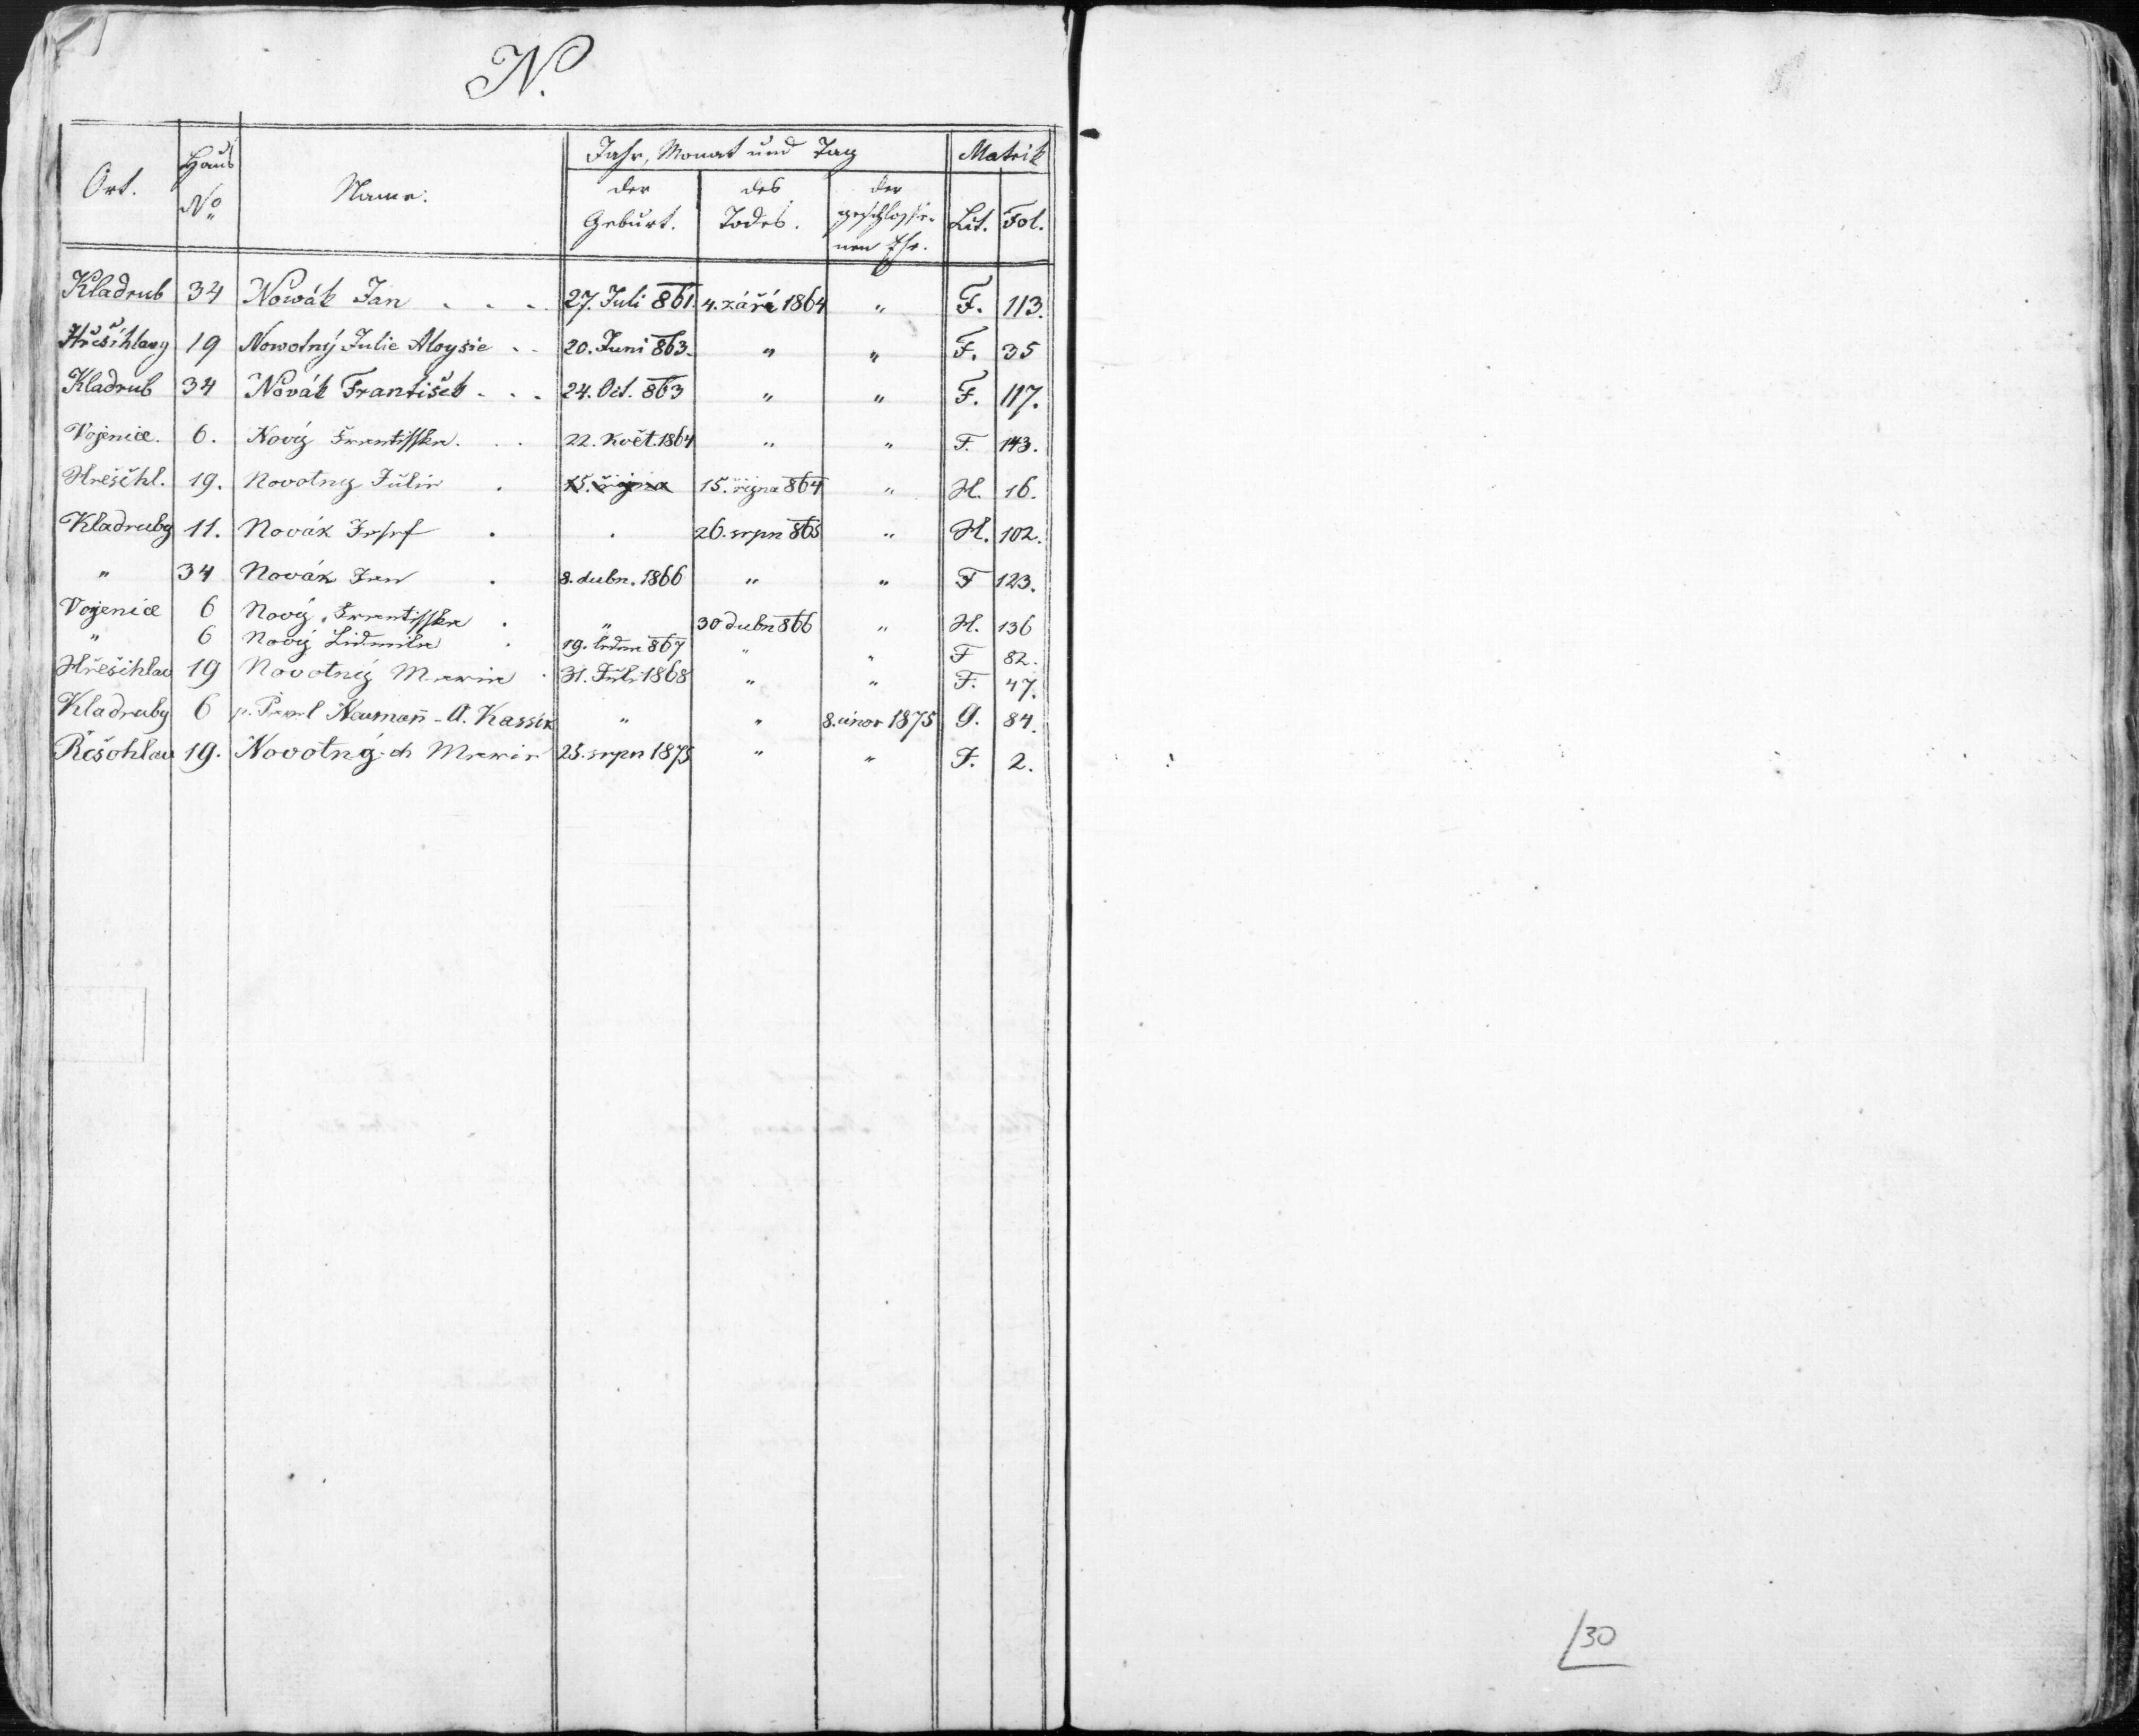 N.
Ort. Haus No Name: Jahr, Monat und Tag Matrik
der Geburt. des Todes. der geschlosse-nen Ehe. Lit. Fol.
Kladrub 34 Nowák Jan . . . 27. Juli 861. 4. září 1864 " F. 113.
Hřešihlavy 19 Nowotný Julie Aloysie . . 20. Juni 863. " " F. 35
Kladrub 34 Novák František . . . 24. Oct. 863 " " F. 117.
Vojenice. 6. Nový Frantisska. . . 22. Květ. 1864 " " F. 143.
Hřešihl. 19. Novotny Julie . 15. října 15. října 864 " H. 16.
Kladruby 11. Novák Josef . . 26. srpn 865 " H. 102.
" 34 Novák Jan . 8. dubn. 1866 " " F 123.
Vojenice 6 Nový Frantisska . " 30 dubn 866 " H. 136
" 6 Nový Lidmila . 19. ledna 867 " " F 82.
Hřešihlav 19 Novotný Marie . 31. Juli 1868 " " F. 47.
Kladruby 6 p. Karl Naumann̄ - A. Kassik " " 8. únor 1875 G. 84.
Řešohlav 19. Novotný-ch Marie 25. srpn 1875 " " F. 2.
30